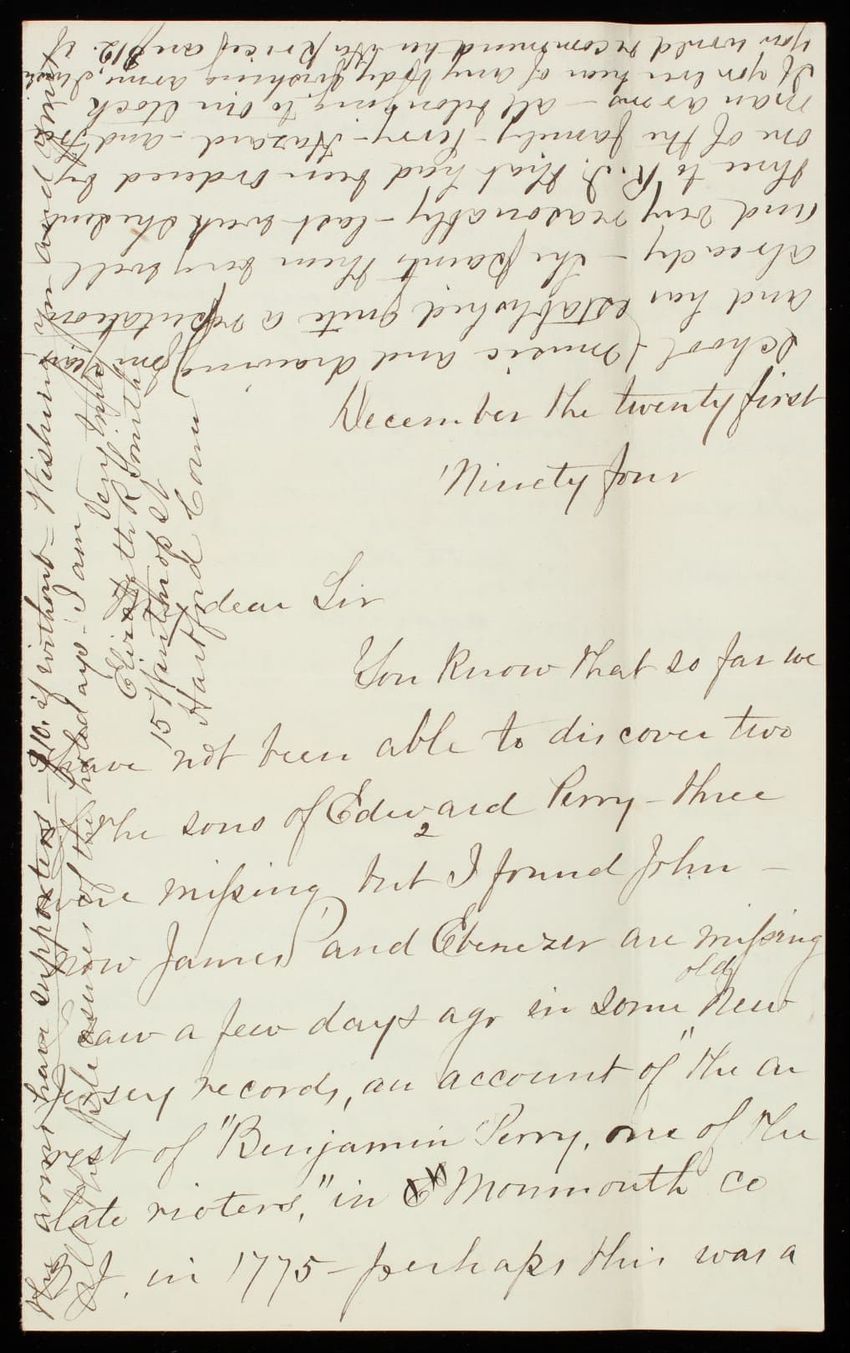 December the twenty first
Ninety four
My dear Sir
You know that so far we
have not been able to discover two
of the sons of Edward Perry - three
2
were missing but I found John -
now James and Ebenezer are missing
I saw a few days ago in some old New
Jersey records, an account of "the ar
rest of "Benjamin Perry, one of the
late rioters," in Monmouth Co
N J, in 1775 - perhaps this was a
school (music and drawing)
and has established quite a reputation for
already - she paints them very well
and very reasonably - last week she sent
three to R. I. that had been ordered by
one of the family - Perry - Hazard - and
man arms - all belonging to our stock
If you ever hear of any body wishing arms,
you would recommend her Her prices are $12. if
the arms have supporters - $10. if without - Wishing you and yours
all the pleasures of the holidays - I am
Very truly
Elizabeth R Smith
15 Winthrop St
Hartford Conn